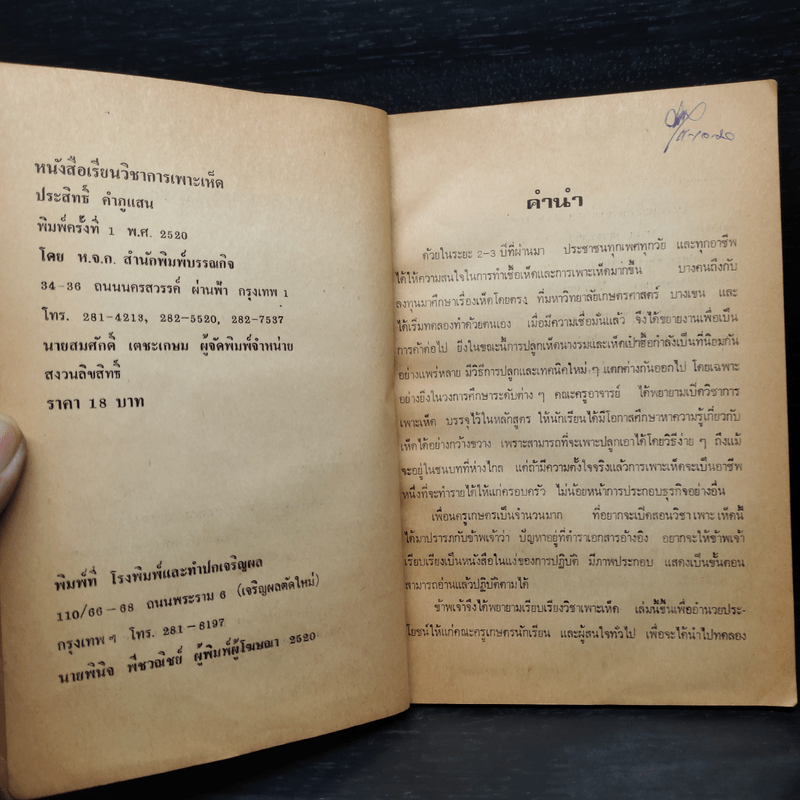 หนังสือเรียนวิชาการเพาะเห็ด
ประสิทธิ์ คำภูแสน
พิมพ์ครั้งที่ 1 พ.ศ. 2520
โดย ห.จ.ก. สำนักพิมพ์บรรณกิจ
34-36 ถนนนครสวรรค์ ผ่านฟ้า กรุงเทพ 1
โทร. 281-4213, 282-5520, 282-7537
นายสมศักดิ์ เตชะเกษม ผู้จัดพิมพ์จำหน่าย
สงวนลิขสิทธิ์
ราคา 18 บาท
พิมพ์ที่ โรงพิมพ์และทำปกเจริญผล
110/66-68 ถนนพระราม 6 (เจริญผลตัดใหม่)
กรุงเทพฯ โทร. 281-8197
นายพินิจ พีชวณิชย์ ผู้พิมพ์ผู้โฆษณา 2520
คำนำ
ด้วยในระยะ 2-3 ปีที่ผ่านมา ประชาชนทุกเพศทุกวัย และทุกอาชีพ
ได้ให้ความสนใจในการทำเชื้อเห็ดและการเพาะเห็ดมากขึ้น บางคนถึงกับ
ลงทุนมาศึกษาเรื่องเห็ดโดยตรง ที่มหาวิทยาลัยเกษตรศาสตร์ บางเขน และ
ได้เริ่มทดลองทำด้วยตนเอง เมื่อมีความเชื่อมั่นแล้ว จึงได้ขยายงานเพื่อเป็น
การค้าต่อไป ยิ่งในขณะนี้การปลูกเห็ดนางรมและเห็ดเป๋าฮื้อกำลังเป็นที่นิยมกัน
อย่างแพร่หลาย มีวิธีการปลูกและเทคนิคใหม่ ๆ แตกต่างกันออกไป โดยเฉพาะ
อย่างยิ่งในวงการศึกษาระดับต่าง ๆ คณะครูอาจารย์ ได้พยายามเปิดวิชาการ
เพาะเห็ด บรรจุไว้ในหลักสูตร ให้นักเรียนได้มีโอกาสศึกษาหาความรู้เกี่ยวกับ
เห็ดได้อย่างกว้างขวาง เพราะสามารถที่จะเพาะปลูกเอาได้โดยวิธีง่าย ๆ ถึงแม้
จะอยู่ในชนบทที่ห่างไกล แต่ถ้ามีความตั้งใจจริงแล้วการเพาะเห็ดจะเป็นอาชีพ
หนึ่งที่จะทำรายได้ให้แก่ครอบครัว ไม่น้อยหน้าการประกอบธุรกิจอย่างอื่น
เพื่อนครูเกษตรเป็นจำนวนมาก ที่อยากจะเปิดสอนวิชาเพาะเห็ดนี้
ได้มาปรารภกับข้าพเจ้าว่า ปัญหาอยู่ที่ตำราเอกสารอ้างอิง อยากจะให้ข้าพเจ้า
เรียบเรียงเป็นหนังสือในแง่ของการปฏิบัติ มีภาพประกอบ แสดงเป็นขั้นตอน
สามารถอ่านแล้วปฏิบัติตามได้
ข้าพเจ้าจึงได้พยายามเรียบเรียงวิชาเพาะเห็ด เล่มนี้ขึ้นเพื่ออำนวยประ-
โยชน์ให้แก่คณะครูเกษตรนักเรียน และผู้สนใจทั่วไป เพื่อจะได้นำไปทดลอง